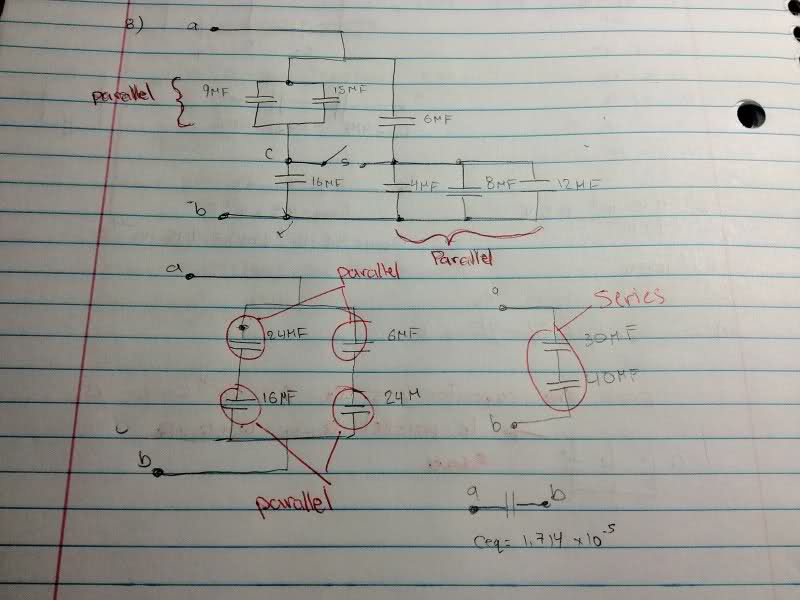 8)
a
parallel
9MF
15MF
6MF
C
S
16MF
4MF
8MF
12MF
b
Parallel
a
parallel
24MF
6MF
16MF
24M
b
parallel
a
Series
30MF
40MF
b
a
b
Ceq = 1.714 × 10⁻⁵